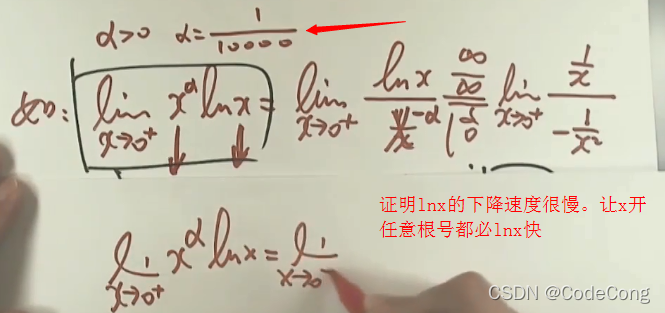 α>0 α=1/10000
α>0: lim x→0⁺ x^α lnx = lim x→0⁺ lnx / x^-α ∞/∞ lim x→0⁺ (1/x) / (-1/x²)
证明lnx的下降速度很慢。让x开
任意根号都必lnx快
lim x→0⁺ x^α lnx = lim x→0
CSDN @CodeCong